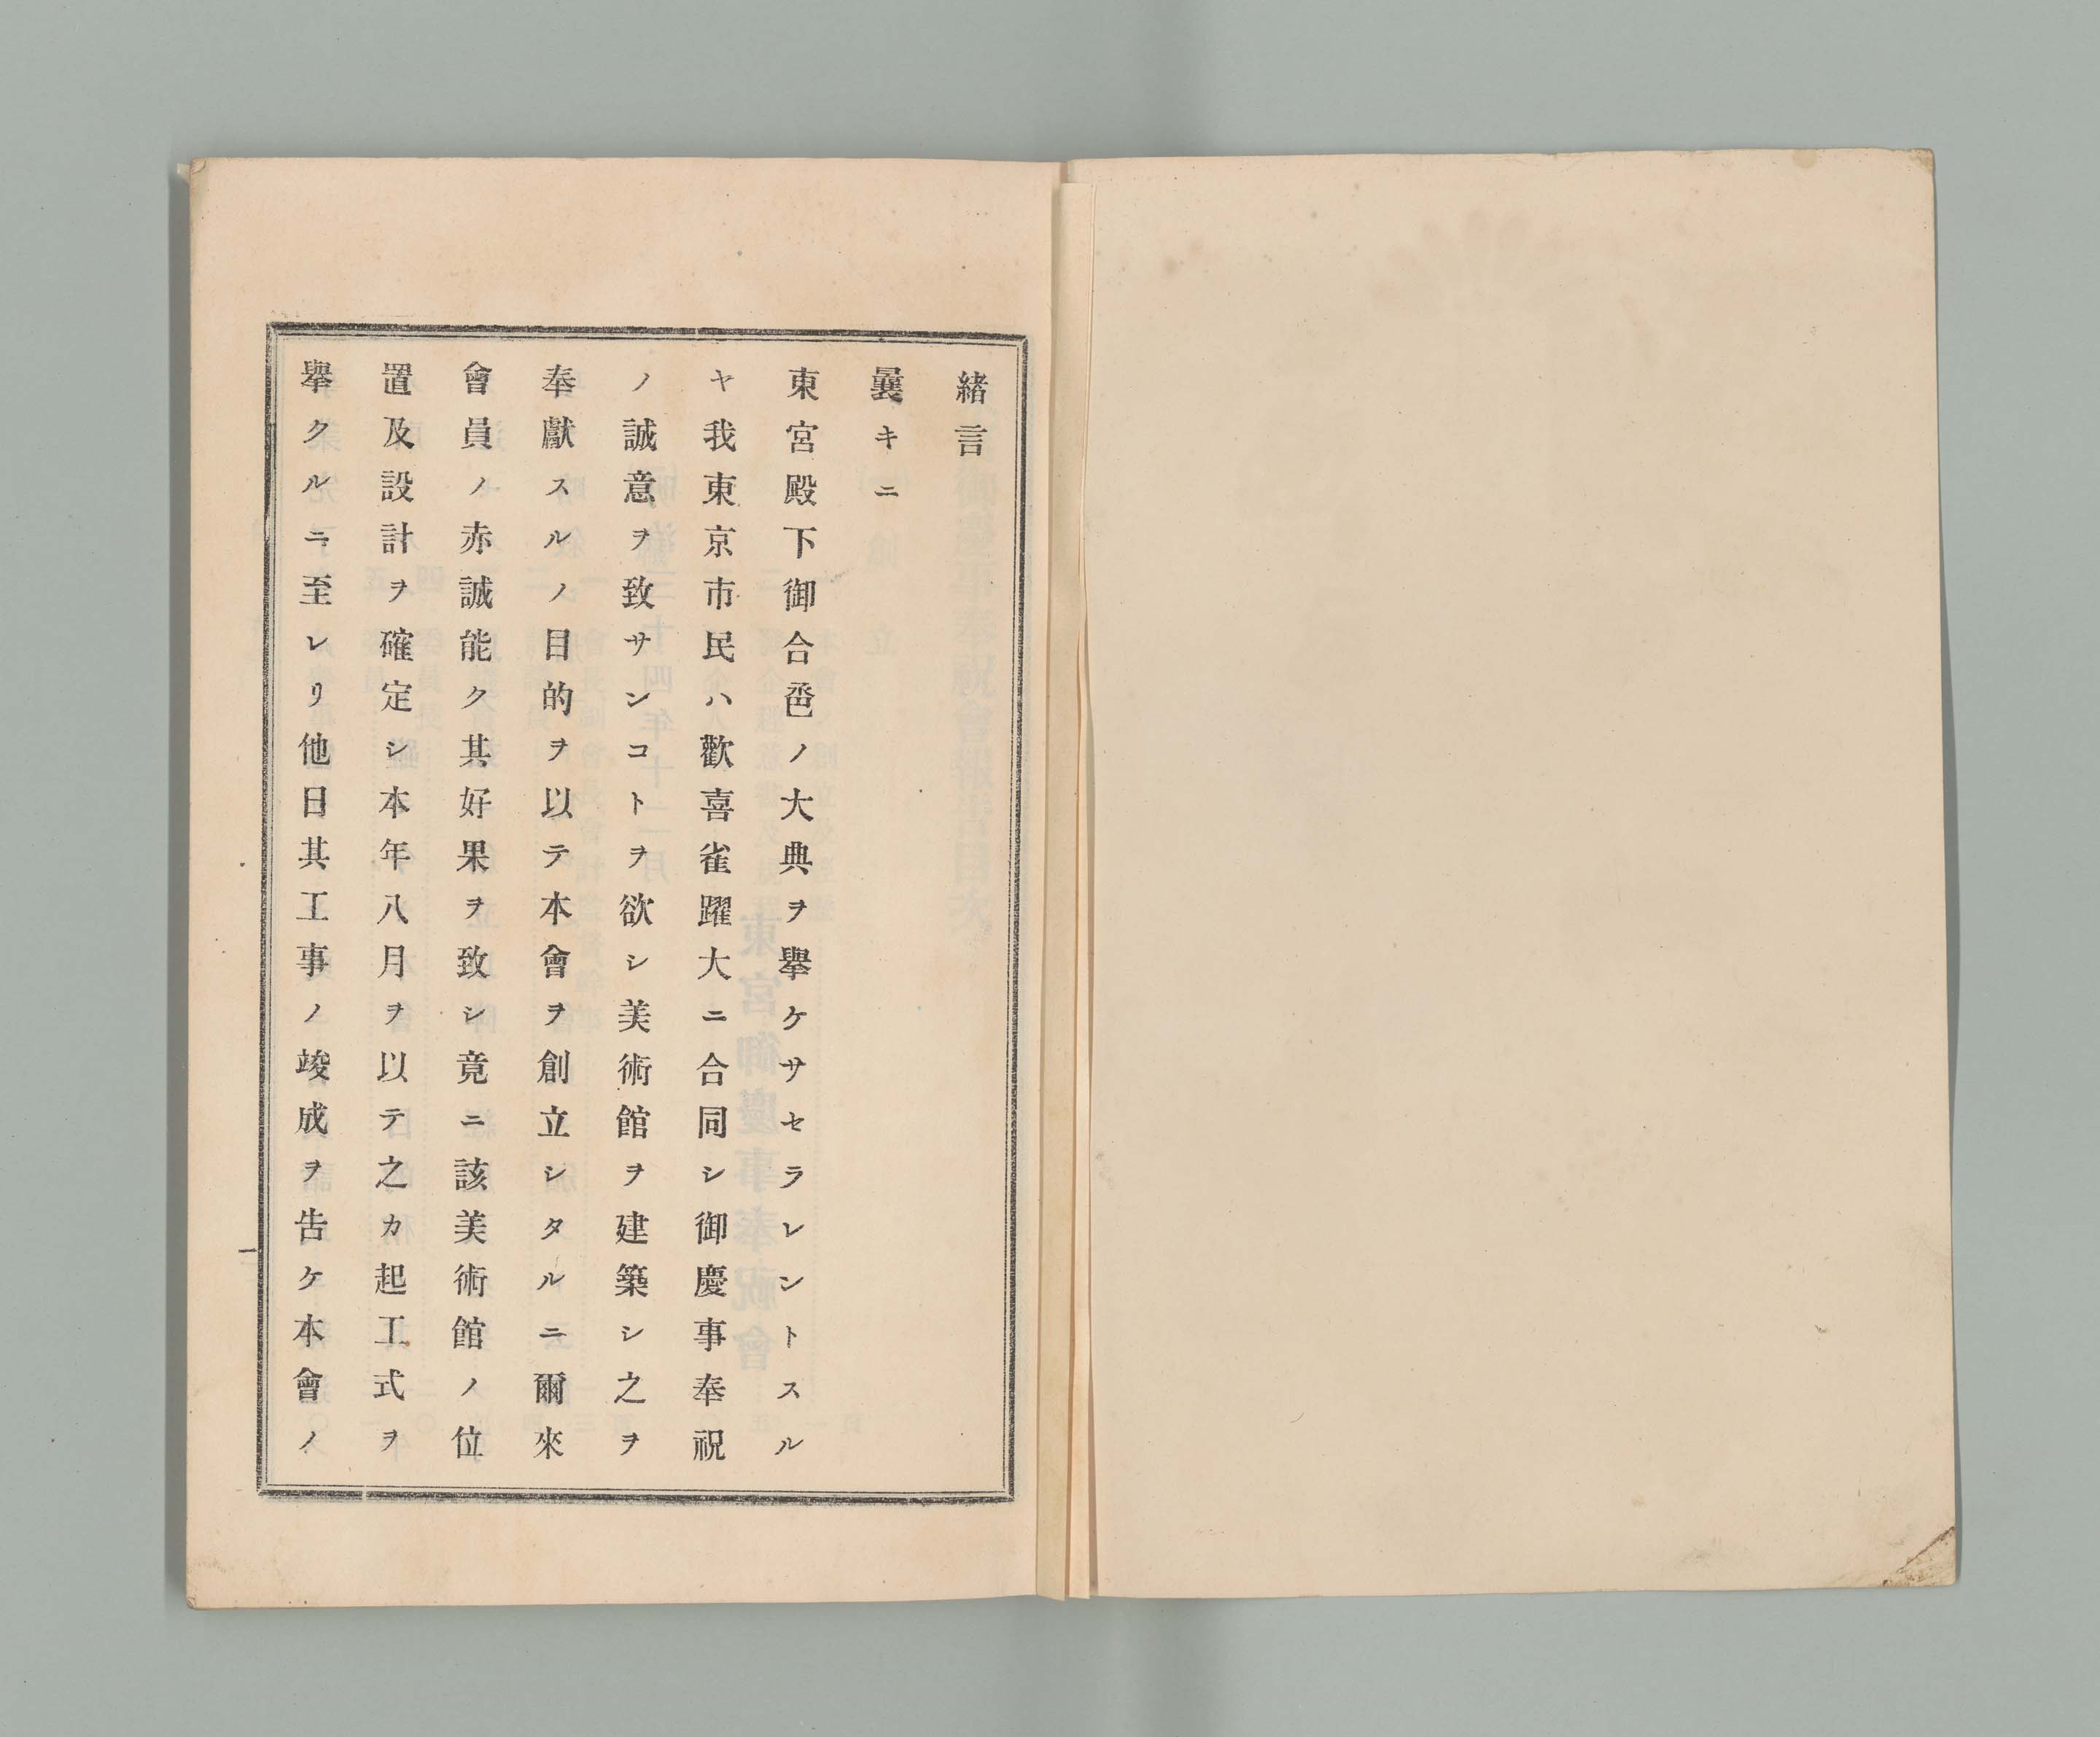 緒言
曩キニ
東宮殿下御合巹ノ大典ヲ擧ケサセラレントスル
ヤ我東京市民ハ歡喜雀躍大ニ合同シ御慶事奉祝
ノ誠意ヲ致サンコトヲ欲シ美術館ヲ建築シ之ヲ
奉獻スルノ目的ヲ以テ本會ヲ創立シタルニ爾來
會員ノ赤誠能ク其好果ヲ致シ竟ニ該美術館ノ位
置及設計ヲ確定シ本年八月ヲ以テ之カ起工式ヲ
擧クルニ至レリ他日其工事ノ竣成ヲ告ケ本會ノ
一